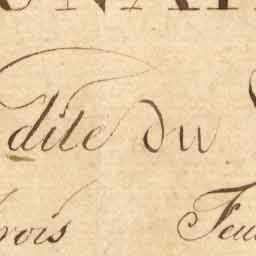 dite du
rois Feu